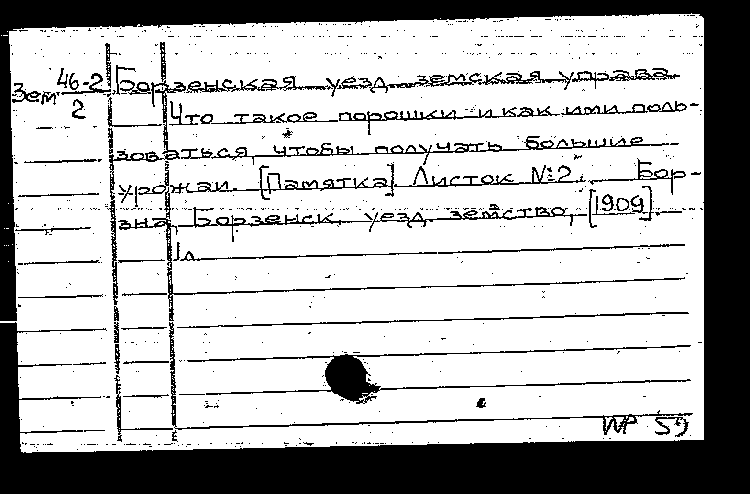 Зем 46-2/2 Борзенская уезд. земская управа.
Что такое порошки и как ими поль-
зоваться, чтобы получать большие
урожаи. [Памятка]. Листок №2. Бор-
зна, Борзенск. уезд. земство, [1909].
1л.
WP 59